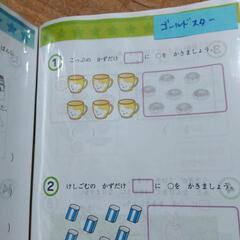 ゴールドスター
① こっぷの かずだけ □に ○を かきましょう。
② けしごむの かずだけ □に ○を かきましょう。